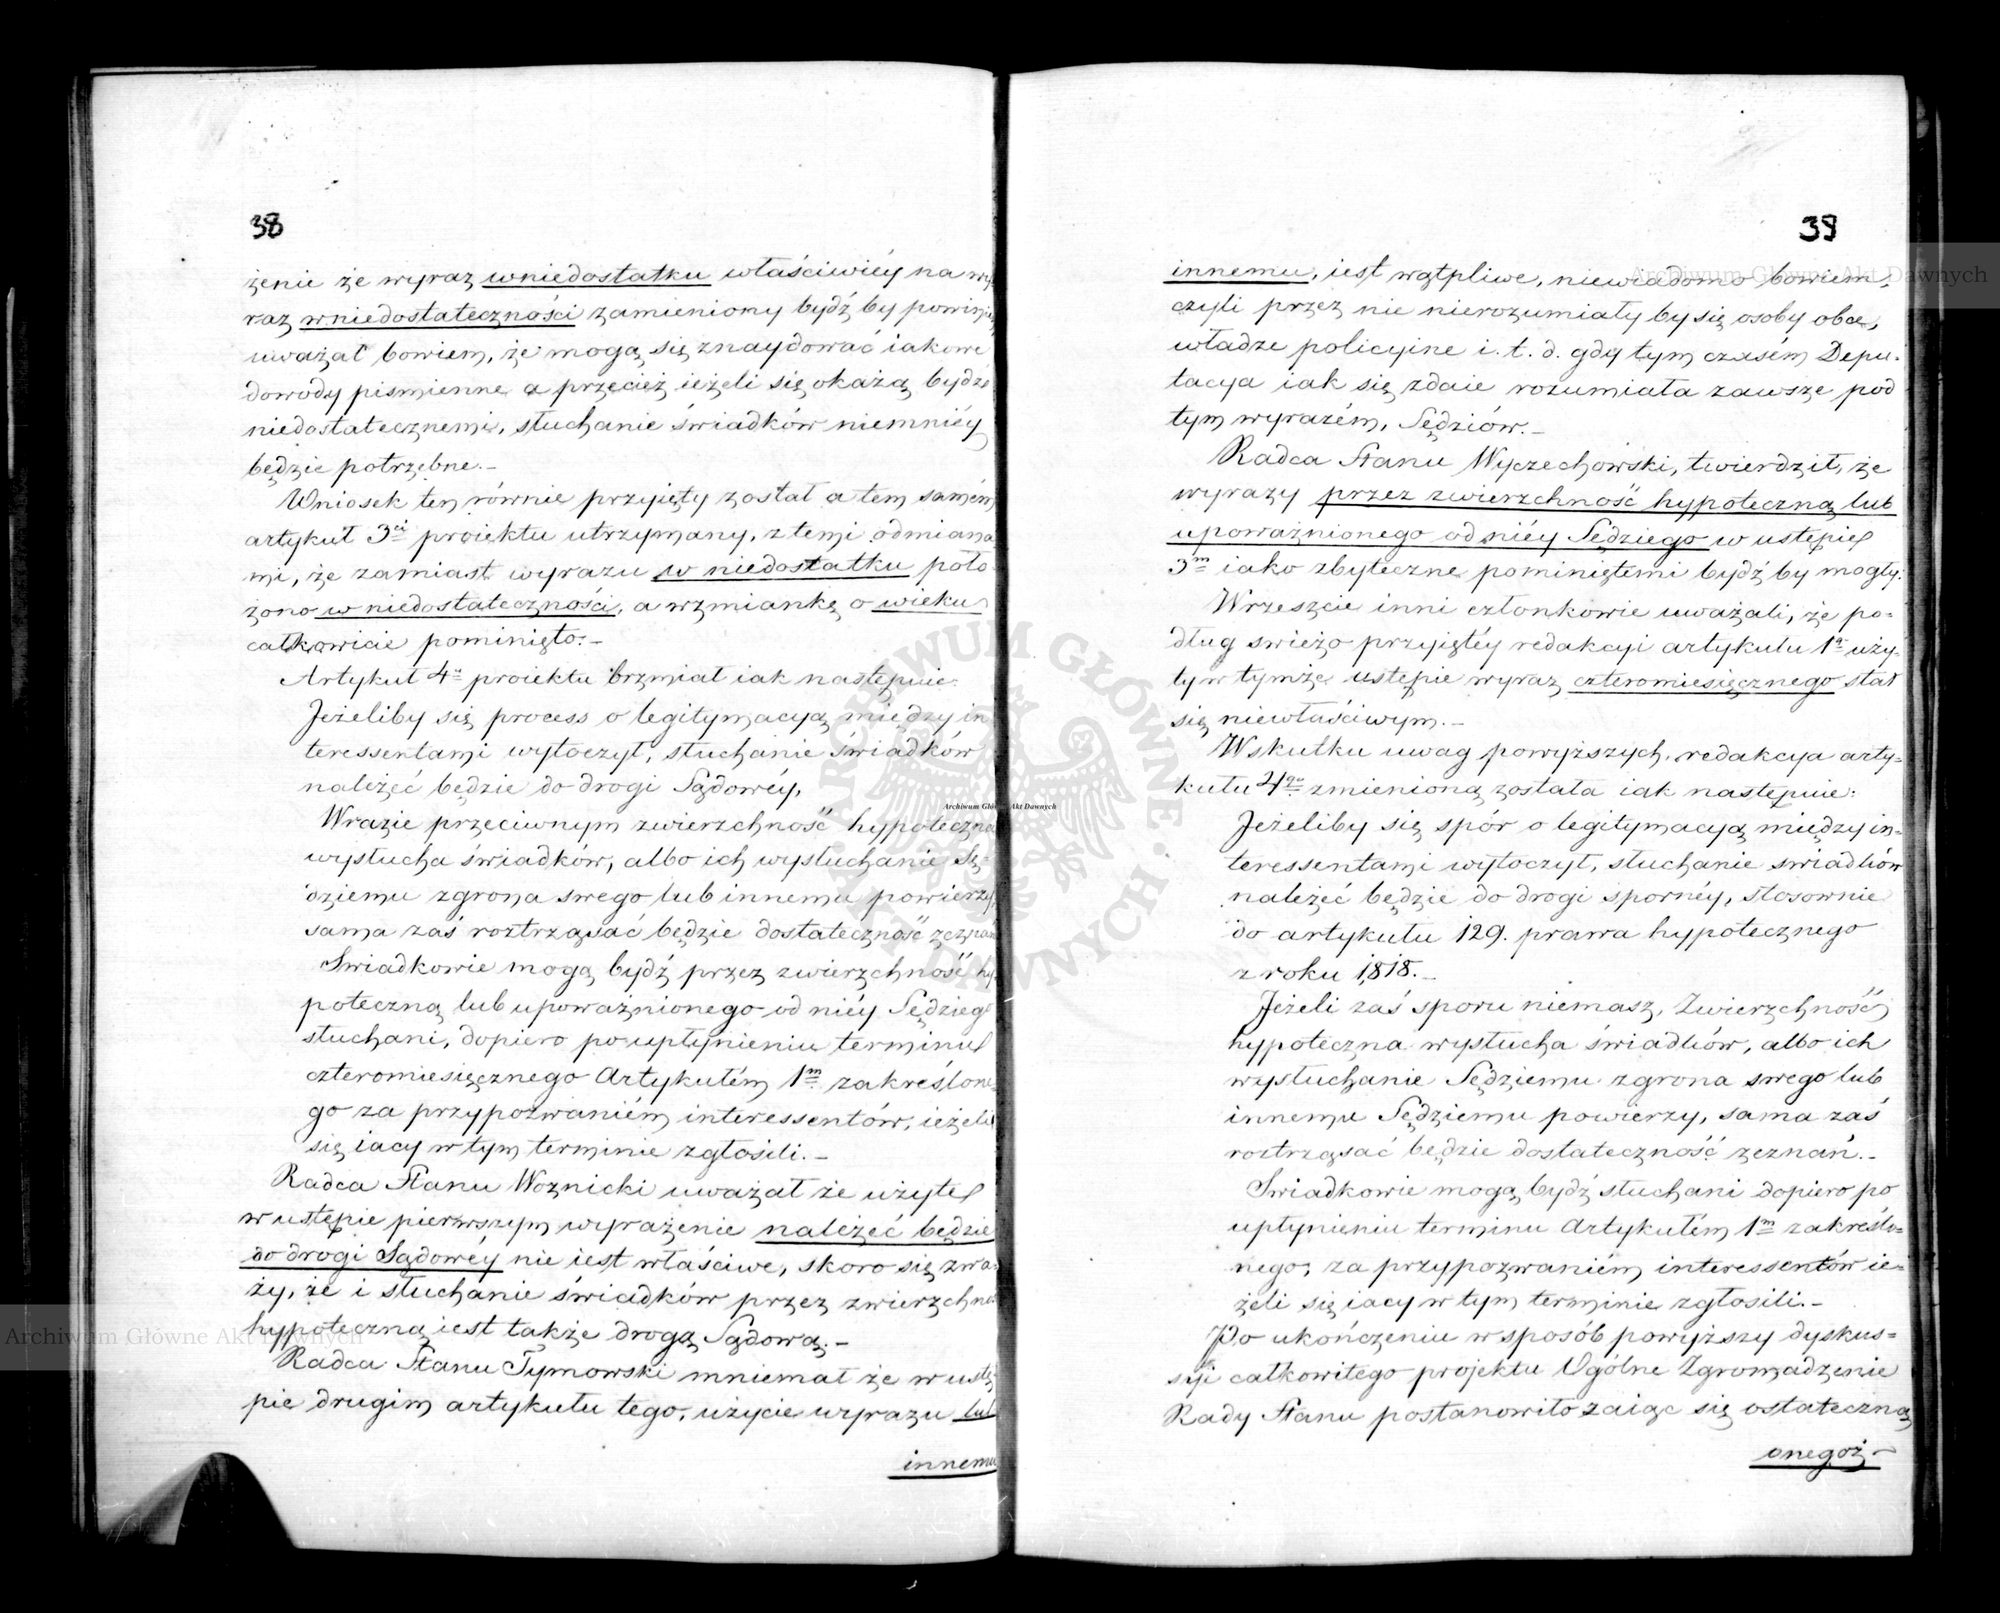 38
żenie że wyraz wniedostatku właściwiéy na wy-
raz wniedostateczności zamieniony bydź by powinien
uważał bowiem, że mogą się znaydować iakowe
dowody piśmienne a przecież ieżeli się okażą bydź
niedostatecznemi, słuchanie świadków niemniéy
będzie potrzebne.-
Wniosek ten równie przyięty został a tem samém
artykuł 3ci proiektu utrzymany, z temi odmiana
mi, że zamiast wyrazu w niedostatku poło
żono w niedostateczności, a wzmiankę o wieku
całkowicie pominięto:-
Artykuł 4y proiektu brzmiał iak następuie:
Jeżeliby się process o legitymacyą między in
teressentami wytoczył, słuchanie świadków
należeć będzie do drogi Sądowéy,
Wrazie przeciwnym zwierzchność hypoteczna
wysłucha świadków, albo ich wysłuchanie Sę-
dziemu zgrona swego lub innemu powierzy,
sama zaś roztrząsać będzie dostateczność zeznań
Swiadkowie mogą bydź przez zwierzchność hy-
poteczną lub upoważnionego od niéy Sędziego
słuchani, dopiero po upłynieniu terminu
czteromiesięcznego Artykułém 1m zakreślone-
go za przypozwaniém interessentów, ieżeli
się iacy w tym terminie zgłosili.-
Radca Stanu Woznicki uważał że użyte
w ustępie pierwszym wyrażenie należeć będzie
do drogi Sądowéy nie iest właściwe, skoro się zwa-
ży, że i słuchanie świadków przez zwierzchność
hypoteczną iest także drogą Sądową.-
Radca Stanu Tymowski mniemał że w ustę-
pie drugim artykułu tego, użycie wyrazu lub
innemu
39
innemu, iest wątpliwe, niewiadomo bowiem,
czyli przez nie nierozumiały by się osoby obce,
władze policyine i.t.d. gdy tym czasém Depu-
tacya iak się zdaie rozumiała zawsze pod
tym wyrazém, Sędziów.-
Radca Stanu Wyczechowski, twierdził, że
wyrazy przez zwierzchność hypoteczną lub
upoważnionego od niéy Sędziego w ustępie
3m iako zbyteczne pominiętemi bydź by mogły.
Wrzeszcie inni członkowie uważali, że po-
dług swieżo przyiętéy redakcyi artykułu 1o uży-
ty w tymże ustępie wyraz czteromiesięcznego stał
się niewłaściwym.-
Wskutku uwag powyższych, redakcya arty-
kułu 4go zmienioną została iak następuie:
Jeżeliby się spór o legitymacyą między in-
teressentami wytoczył, słuchanie świadków
należeć będzie do drogi spornéy, stosownie
do artykułu 129. prawa hypotecznego
z roku 1818.-
Jeżeli zaś sporu niemasz, Zwierzchność
hypoteczna wysłucha świadków, albo ich
wysłuchanie Sędziemu zgrona swego lub
innemu Sędziemu powierzy, sama zaś
roztrząsać będzie dostateczność zeznań.-
Swiadkowie mogą bydź słuchani dopiero po
upłynieniu terminu Artykułém 1m zakreślo-
nego, za przypozwaniém interessentów ie-
żeli się iacy w tym terminie zgłosili.-
Po ukończeniu w sposób powyższy dyskus-
syi całkowitego projektu Ogólne Zgromadzenie
Rady Stanu postanowiło zaiąc się ostateczną
onegoż-
Archiwum Główne Akt Dawnych
Archiwum Główne Akt Dawnych
Archiwum Główne Akt Dawnych
ARCHIWUM GŁÓWNE AKT DAWNYCH